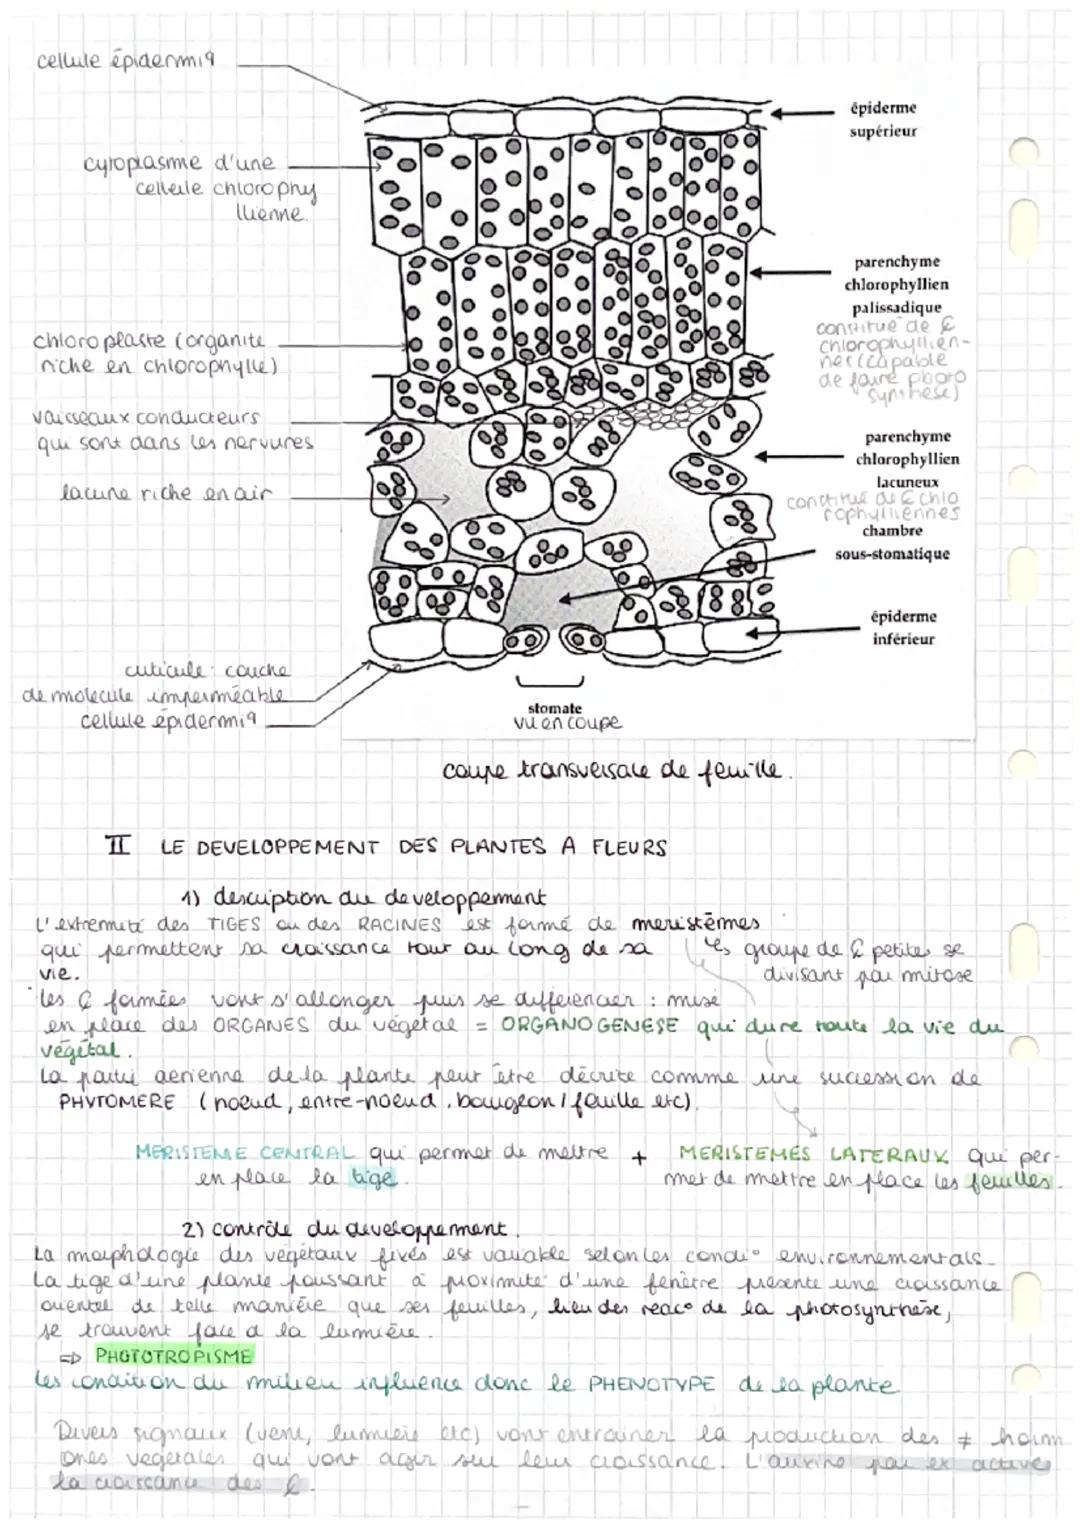 cellule épidermiq
épiderme
supérieur
cytoplasme d'une
cellule chlorophy
llienne.
parenchyme
chlorophyllien
palissadique
constitué de ₢
chlorophyllien-
nes (capable
de faire photo
synthèse)
chloroplaste (organite
riche en chlorophylle)
vaisseaux conducteurs
qui sont dans les nervures
parenchyme
chlorophyllien
lacuneux
constitué de ₢ chlo
rophylliennes
lacune riche en air
chambre
sous-stomatique
épiderme
inférieur
cuticule : couche
de molécule imperméable
cellule épidermiq
stomate
vu en coupe
coupe transversale de feuille.
II LE DEVELOPPEMENT DES PLANTES A FLEURS
1) description du developpement
L'extremité des TIGES ou des RACINES est formé de meristèmes
qui permettent sa croissance tout au long de sa
vie.
↳ groupe de ₢ petites se
divisant par mitose
les ₢ formées vont s'allonger puis se différencier : mise
en place des ORGANES du végétal = ORGANOGENESE qui dure toute la vie du
végétal.
La partie aerienne de la plante peut être décrite comme une sucession de
PHYTOMERE (noeud, entre-noeud, bourgeon / feuille etc).
MERISTEME CENTRAL qui permet de mettre
en place la tige.
+ MERISTEMES LATERAUX qui per-
met de mettre en place les feuilles.
2) contrôle du developpement.
La morphologie des végétaux fixés est variable selon les condi° environnementals.
La tige d'une plante poussant à proximité d'une fenêtre présente une croissance
orientée de telle manière que ses feuilles, lieu des reac° de la photosynthèse,
se trouvent face à la lumière.
=> PHOTOTROPISME
les condition du milieu influence donc le PHENOTYPE de la plante
Divers signaux (vent, lumière etc) vont entrainer la production des ≠ horm
ones vegetales qui vont agir sur leur croissance. L'auxine par ex active
la croissance des ₢.